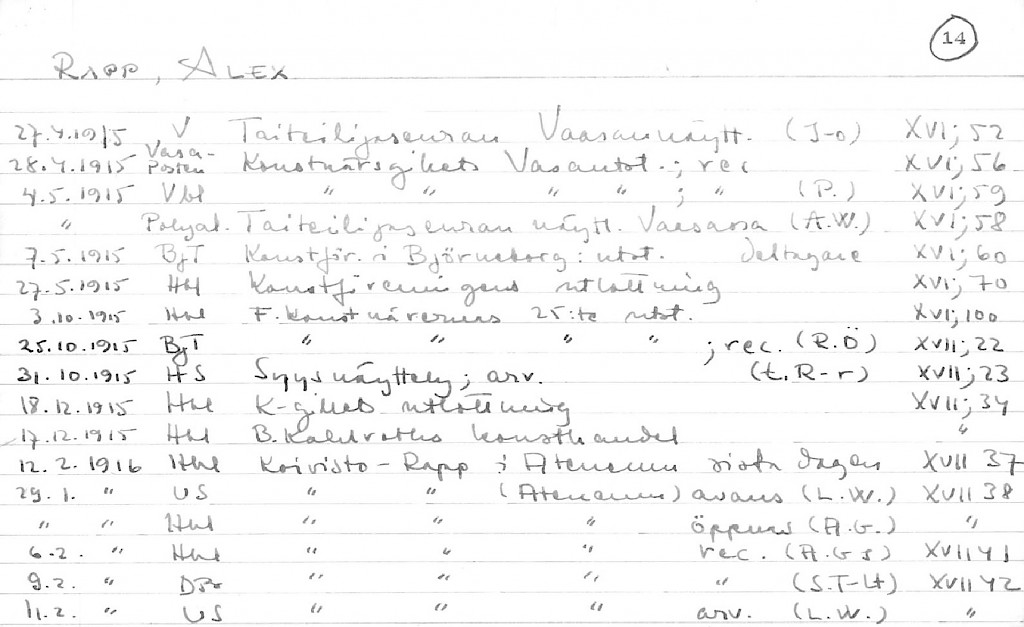 14
RAPP, ALEX
27.4.1915 V Taiteilijaseuran Vaasannäytt. (J-o) XVI; 52
28.4.1915 Vasa-Posten Konstnärsgillets Vasautst.; rec XVI; 56
4.5.1915 Vbl " " " " ; " (P.) XVI; 59
" Pohjal. Taiteilijaseuran näytt. Vaasassa (A.W.) XVI; 58
7.5.1915 BjT Konstför. i Björneborg: utst. deltagare XVI; 60
27.5.1915 Hbl Konstföreningens utlottning XVI; 70
3.10.1915 Hbl F. Konstnärernas 25:te utst. XVI; 100
25.10.1915 BjT " " " " ; rec. (R.Ö) XVII; 22
31.10.1915 HS Syysnäyttely; arv. (t. R-r) XVII; 23
18.12.1915 Hbl K-gillets utlottning XVII; 34
17.12.1915 Hbl B. konsthandel "
12.2.1916 Hbl Koivisto-Rapp i Ateneum sista dagen XVII 37
29.1. " US " " (Ateneum) avaus (L.W.) XVII 38
" " Hbl " " " öppnas (A.G.) "
6.2. " Hbl " " " rec. (A.G s) XVII 41
9.2. " DPr " " " " (S.T-lt) XVII 42
11.2. " US " " " arv. (L.W.) "